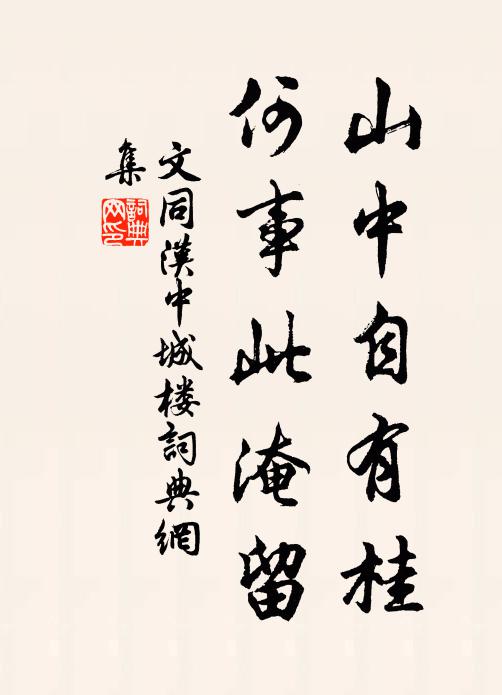 山中自有桂
何事此淹留
文同漢中城楼詞典網
集
詞典
网印